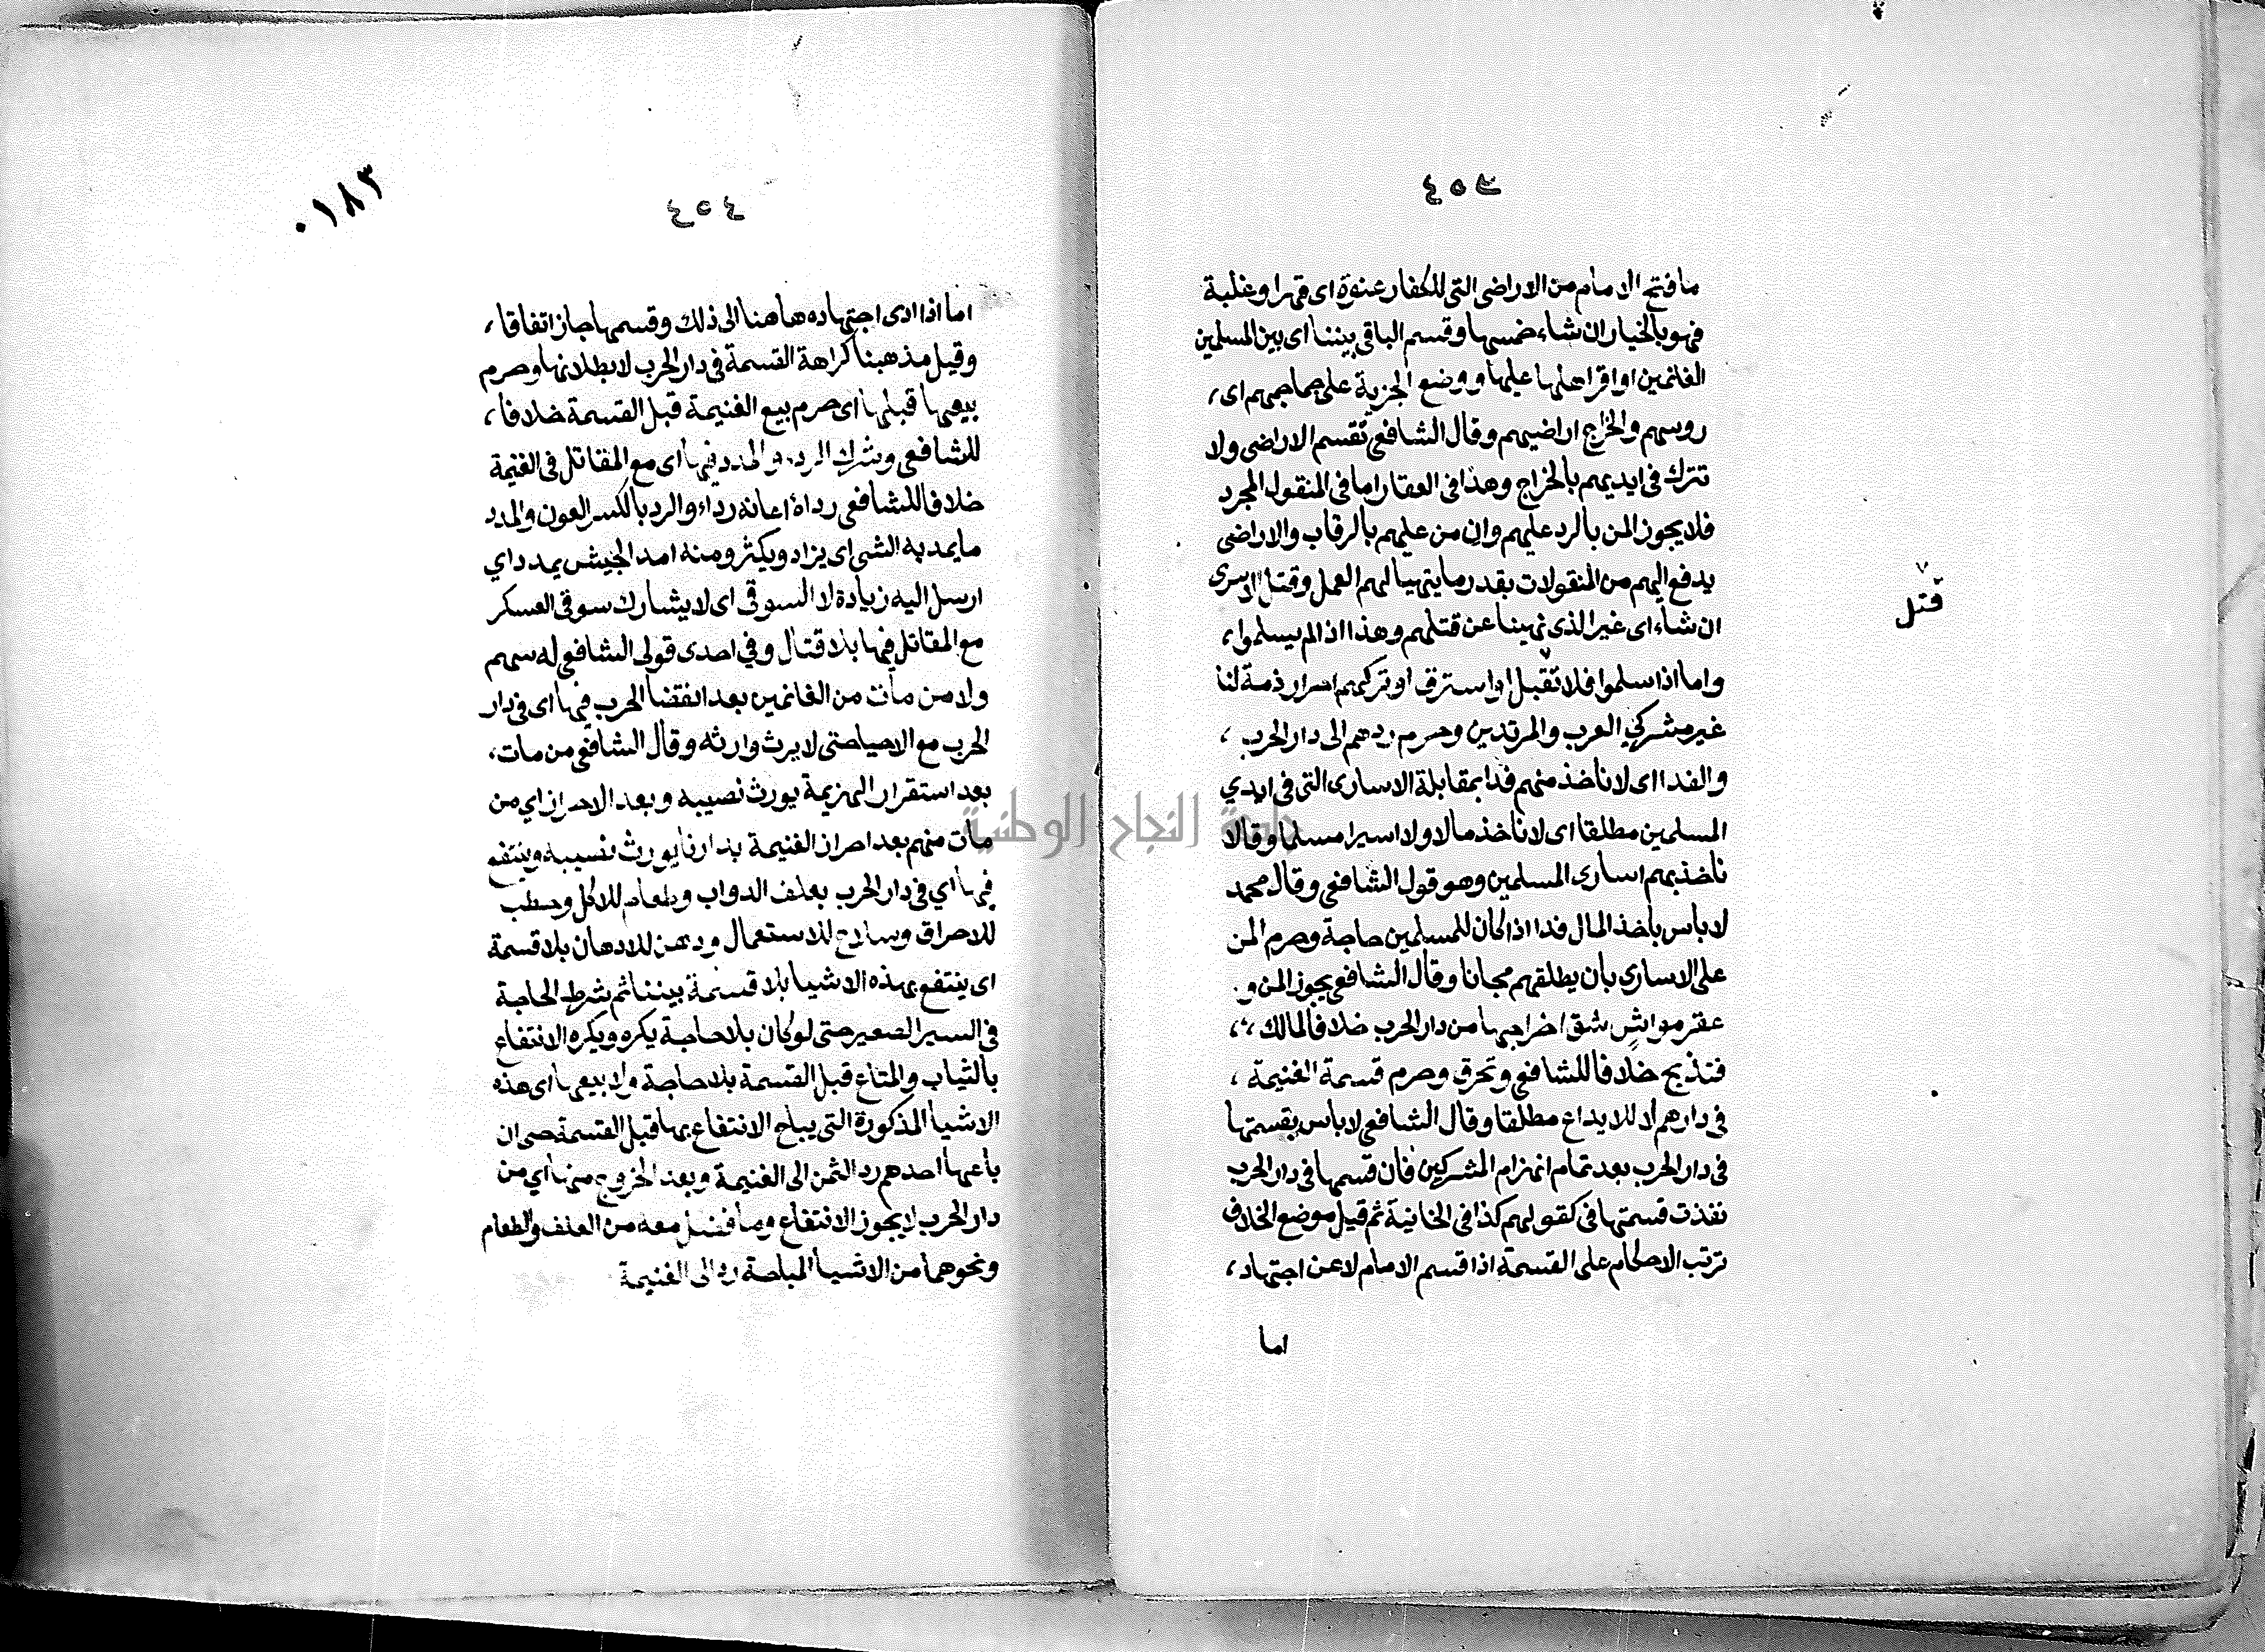 ٤٥٣
ما فتح الامام من الاراضى التى للكفار عنوة اى قهرا وغلبة
فهو بالخيار ان شاء خمسها وقسم الباقى بيننا اى بين المسلمين
الغانمين او اقر اهلها عليها ووضع الجزية على جماجمهم اى،
روسهم والخراج اراضيهم وقال الشافعى تقسم الاراضى ولا
تترك فى ايديهم بالخراج وهذا فى العقار اما فى المنقول المجرد
فلا يجوز المن بالرد عليهم وان من عليهم بالرقاب والاراضى
يدفع اليهم من المنقولات بقدر ما يتهيا لهم العمل وقتل الاسرى
ان شاء اى غير الذى نهينا عن قتلهم وهذا اذا لم يسلموا،
واما اذا سلموا فلا تقبل او استرق او تركهم احرار ذمة لنا
غير مشركي العرب والمرتدين وحرم ردهم الى دار الحرب،
والفدا اى لا ناخذ منهم فدا بمقابلة الاسارى التى فى ايدي
المسلمين مطلقا اى لا ناخذ مالا ولا اسيرا مسلما وقالا
ناخذ بهم اسارى المسلمين وهو قول الشافعى وقال محمد
لا باس باخذ المال فدا اذا كان للمسلمين حاجة وحرم المن
على الاسارى بان يطلقهم مجانا وقال الشافعى يجوز المن و
عقر مواش شق اخراجها من دار الحرب خلافا لمالك،،
فتذبح خلافا للشافعى وتحرق وحرم قسمة الغنيمة،
فى دارهم لا للايداع مطلقا وقال الشافعى لا باس بقسمتها
فى دار الحرب بعد تمام انهزام المشركين فان قسمها فى دار الحرب
نفذت قسمتها فى كقولهم كذا فى الخانية ثم قيل موضع الخلاف
ترتب الاحكام على القسمة اذا قسم الامام لا عن اجتهاد،
اما
قتل
٠١٨٣
٤٥٤
اما اذا ادى اجتهاده هاهنا الى ذلك وقسمها جاز اتفاقا،
وقيل مذهبنا كراهة القسمة فى دار الحرب لا بطلانها وحرم
بيعها قبلها اى حرم بيع الغنيمة قبل القسمة خلافا،
للشافعى وشرك الردء والمدد فيها اى مع المقاتل فى الغنيمة
خلافا للشافعى رداه اعانه رداء والرد بالكسر العون والمدد
ما يمد به الشى اى يزاد ويكثر ومنه امد الجيش يمدد اي
ارسل اليه زيادة لا السوقى اى لا يشارك سوقى العسكر
مع المقاتل فيها بلا قتال وفى احدى قولى الشافعى له سهم
ولا من مات من الغانمين بعد انقضا الحرب فيها اى فى دار
الحرب مع الاحيا حتى لا يرث وارثه وقال الشافعى من مات،
بعد استقرار الهزيمة يورث نصيبه وبعد الاحراز اي من
مات منهم بعد احراز الغنيمة بدارنا يورث نصيبه وينتفع
فيها اي فى دار الحرب بعلف الدواب وطعام للاكل وحطب
للاحراق وسلاح للاستعمال ودهن للادهان بلا قسمة
اى ينتفع بهذه الاشيا بلا قسمة بيننا ثم شرط الحاجة
فى السير الصغير حتى لو كان بلا حاجة يكره ويكره الانتفاع
بالثياب والمتاع قبل القسمة بلا حاجة ولا بيعها اى هذه
الاشيا المذكورة التى يباح الانتفاع بها قبل القسمة حتى ان
باعها احدهم رد الثمن الى الغنيمة وبعد الخروج منها اي من
دار الحرب لا يجوز الانتفاع وما فضل معه من العلف والطعام
ونحوهما من الاشيا المباحة رد الى الغنيمة
جامعة النجاح الوطنية